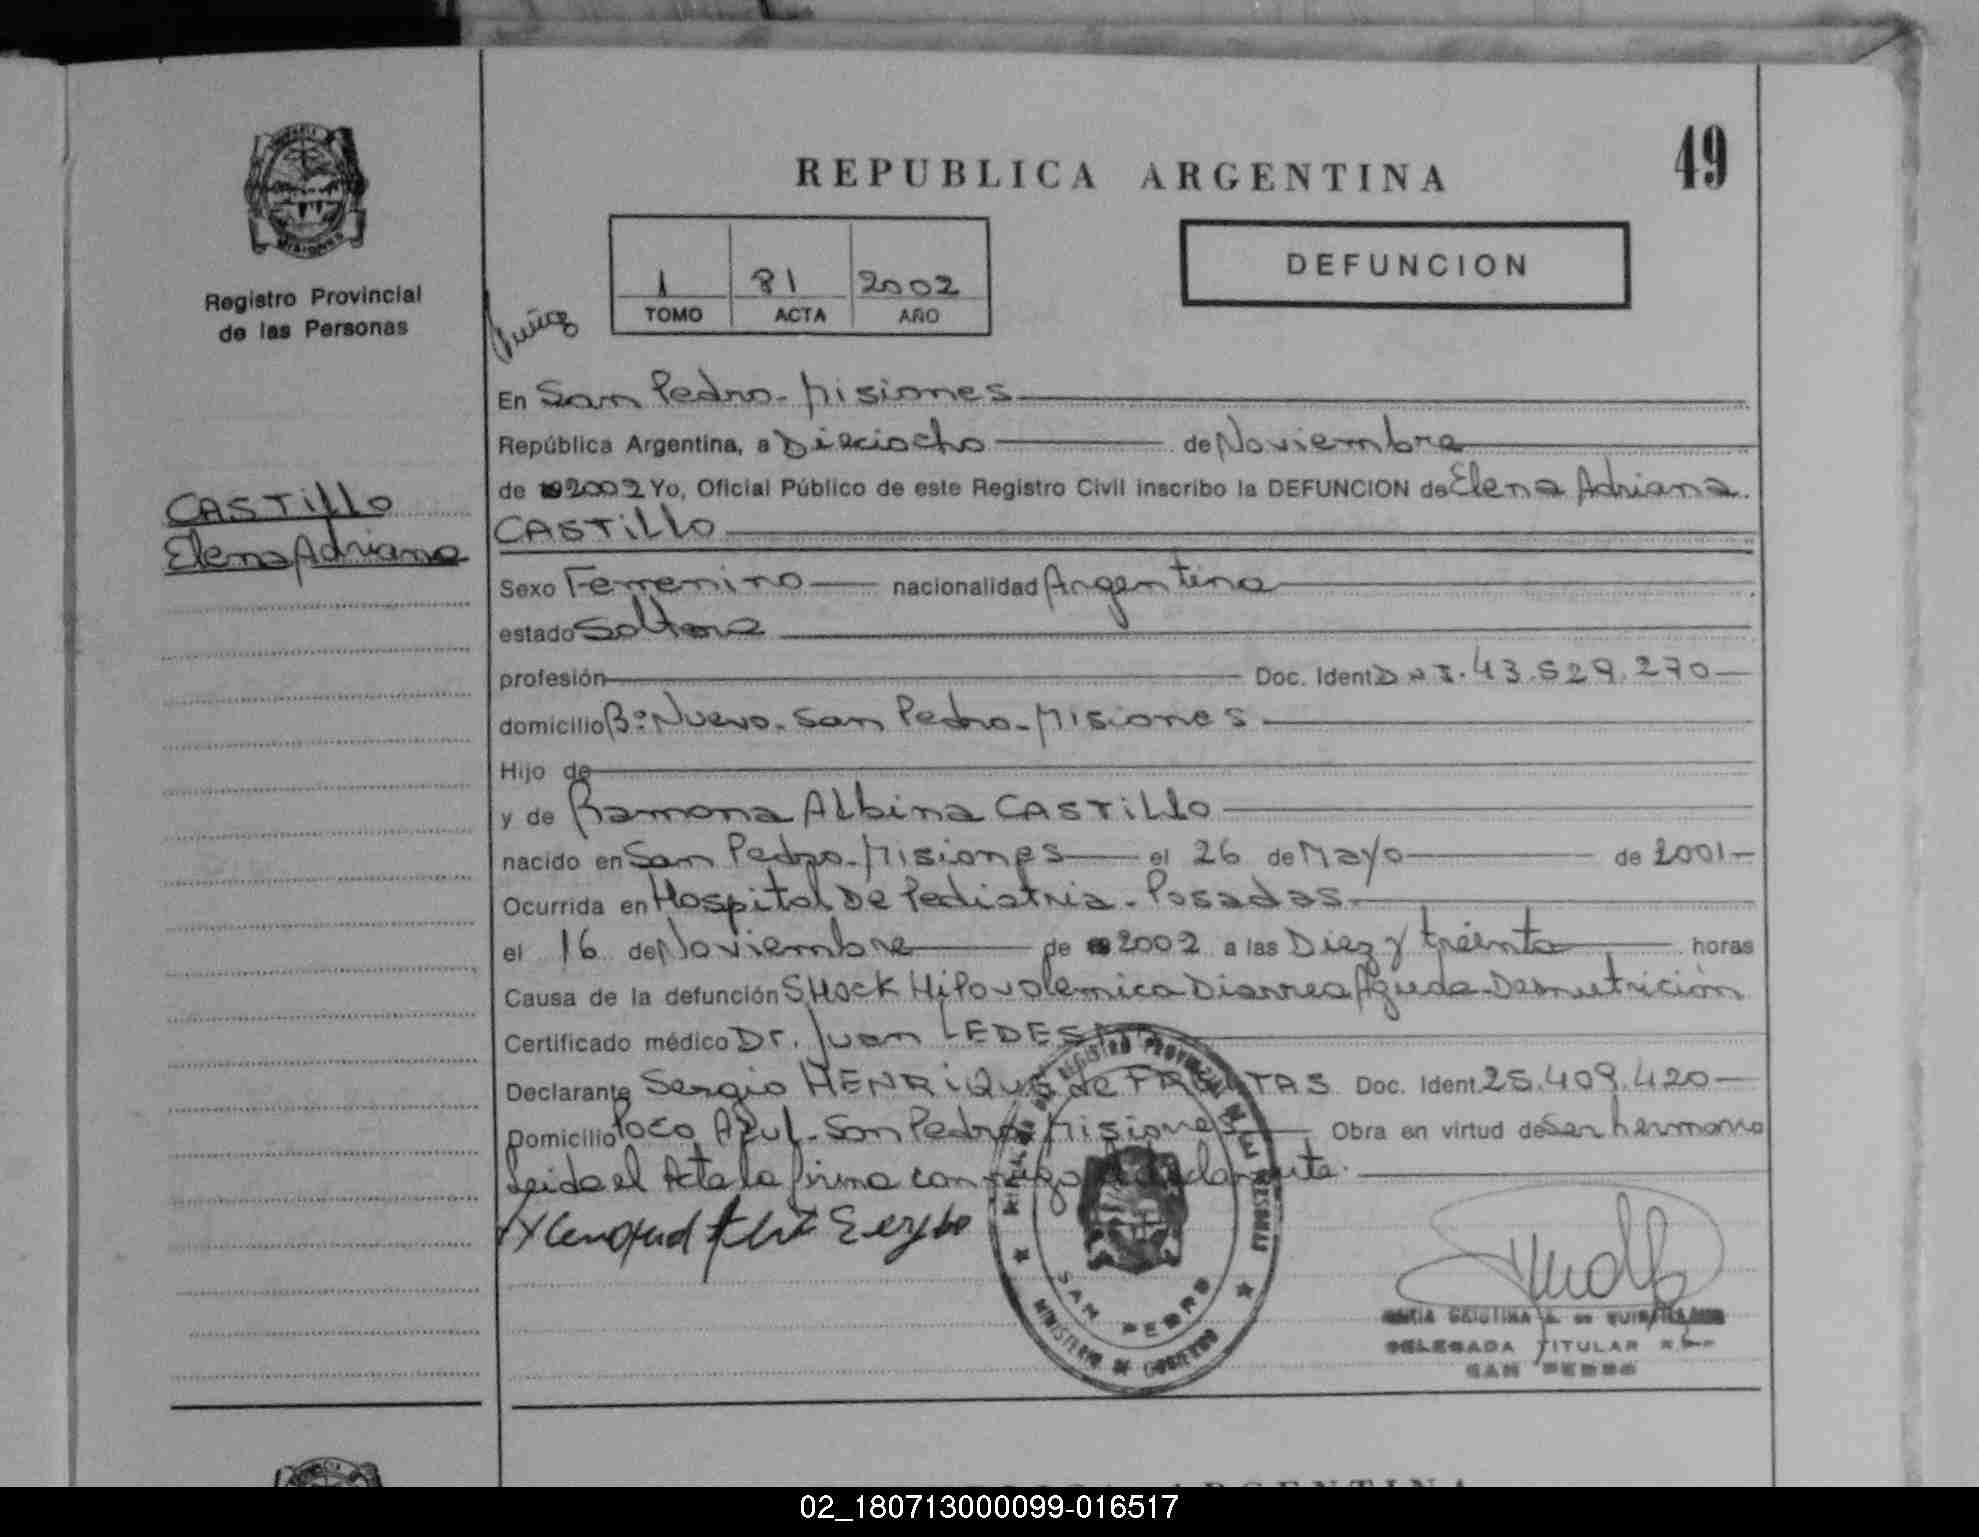 49
REPUBLICA ARGENTINA
DEFUNCION
1 81 2002
TOMO ACTA AÑO
MISIONES
Registro Provincial
de las Personas
CASTillo
Elena Adriana
En San Pedro - Misiones
República Argentina, a Dieciocho de Noviembre
de 2002 Yo, Oficial Público de este Registro Civil inscribo la DEFUNCION de Elena Adriana
CASTillo
Sexo Femenino nacionalidad Argentina
estado Soltera
profesión Doc. Ident D.N.I. 43.529.270
domicilio Bº Nuevo - San Pedro - Misiones
Hijo de
y de Ramona Albina CASTillo
nacido en San Pedro - Misiones el 26 de Mayo de 2001
Ocurrida en Hospital De Pediatria - Posadas
el 16 de Noviembre de 2002 a las Diez y treinta horas
Causa de la defunción SHock Hipovolemico Diarrea Aguda - Desnutrición
Certificado médico Dr. Juan LEDESMA
Declarante Sergio HENRiQUE de FREITAS Doc. Ident. 25.409.420
Domicilio Poco Azul - San Pedro Misiones Obra en virtud de ser hermano
Leida el Acta la firma conmigo el declarante.
REGISTRO PROVINCIAL DE LAS PERSONAS
SAN PEDRO
MINISTERIO DE GOBIERNO
DELEGADA TITULAR
SAN PEDRO
02_180713000099-016517